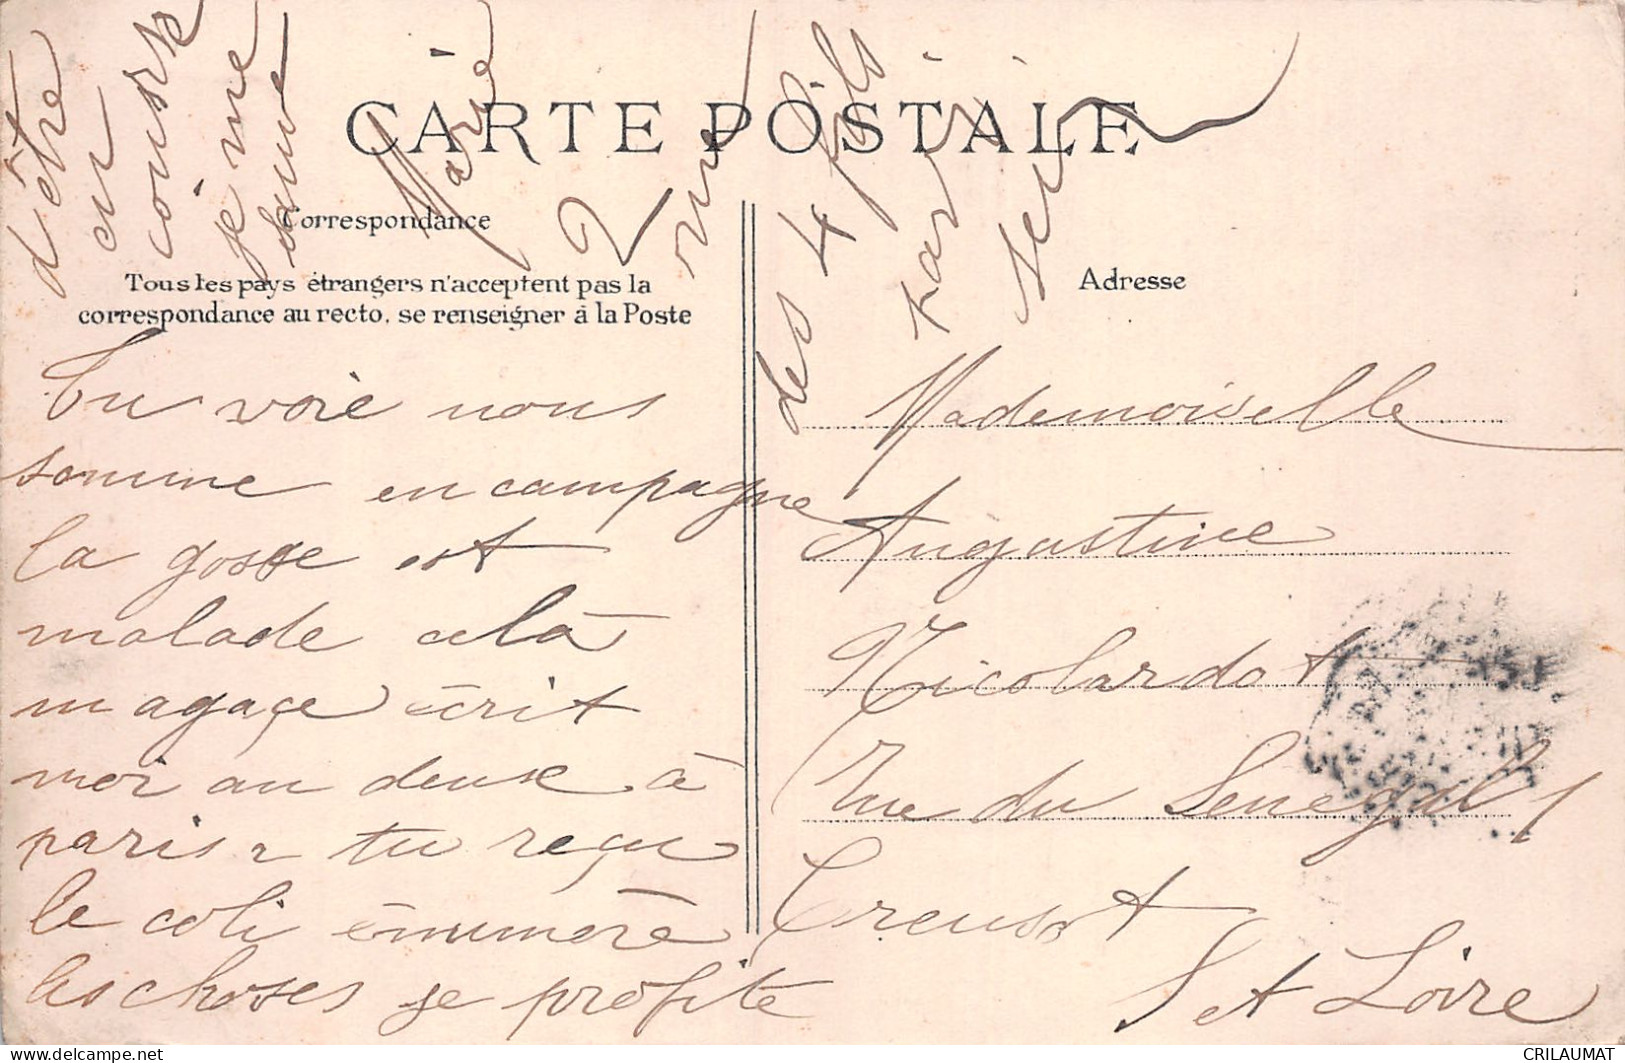 CARTE POSTALE
Correspondance
Tous les pays étrangers n'acceptent pas la
correspondance au recto, se renseigner à la Poste
Adresse
Tu voie nous
somme en campagne
la gosse est
malade cela
m agaçe écrit
moi au deuse à
paris 2 tu reçu
le coli énumère
les choses je profite
d'être
en
course
je me
sauve
Marie
2
rue
des 4 fils
Paris
Mademoiselle
Augustine
Nicolardot
Rue du Senegal 1
Creusot
S et Loire
CRILAUMAT